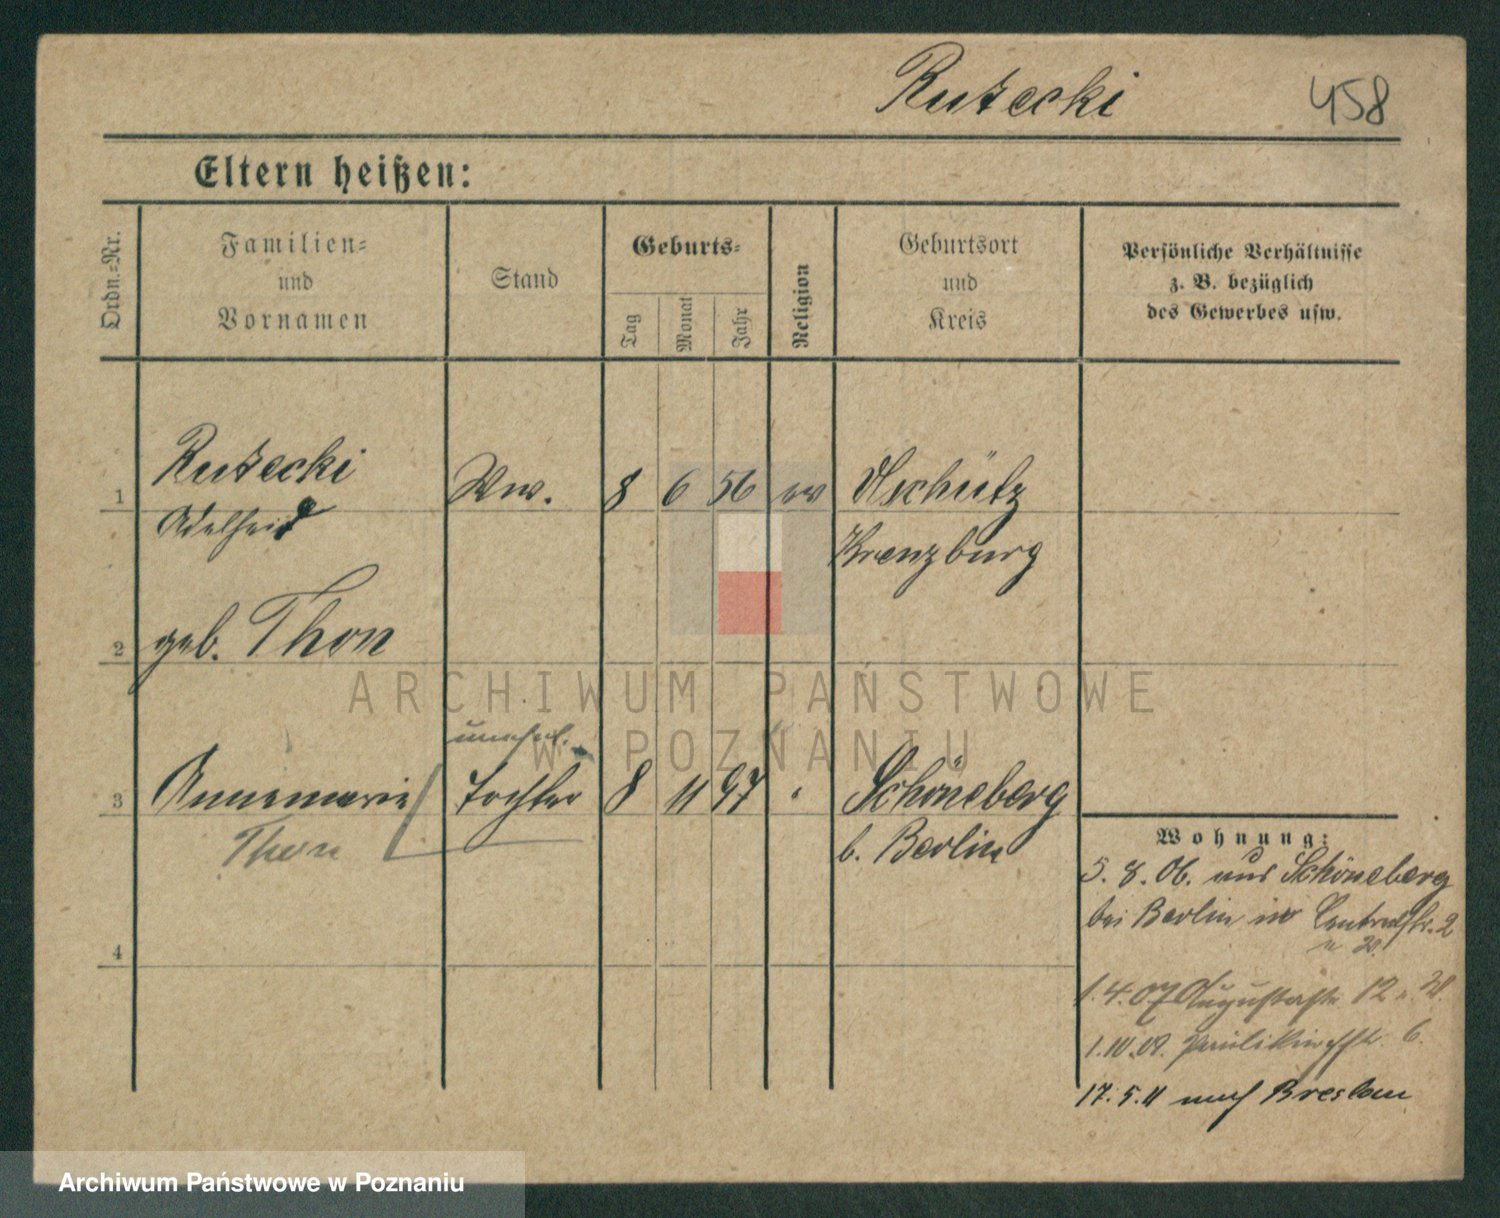 Rutecki 458
Eltern heißen:
Ordn.=Nr.
Familien=
und
Vornamen
Stand
Geburts=
Tag
Monat
Jahr
Religion
Geburtsort
und
Kreis
Persönliche Verhältnisse
z. B. bezüglich
des Gewerbes usw.
1 Rutecki Ww. 8 6 56 ev Schütz
Adelheid Kreuzburg
2 geb. Thon
unehel.
3 Annemarie Tochter 8 11 97 " Schöneberg
Thon b. Berlin
4
Wohnung:
5. 8. 06. aus Schöneberg
bei Berlin in Centralstr. 2
1. 4. 07 Augustastr. 12
1. 10. 09. Paulikirchstr. 6.
17. 5. 11 nach Breslau
ARCHIWUM PAŃSTWOWE
W POZNANIU
Archiwum Państwowe w Poznaniu